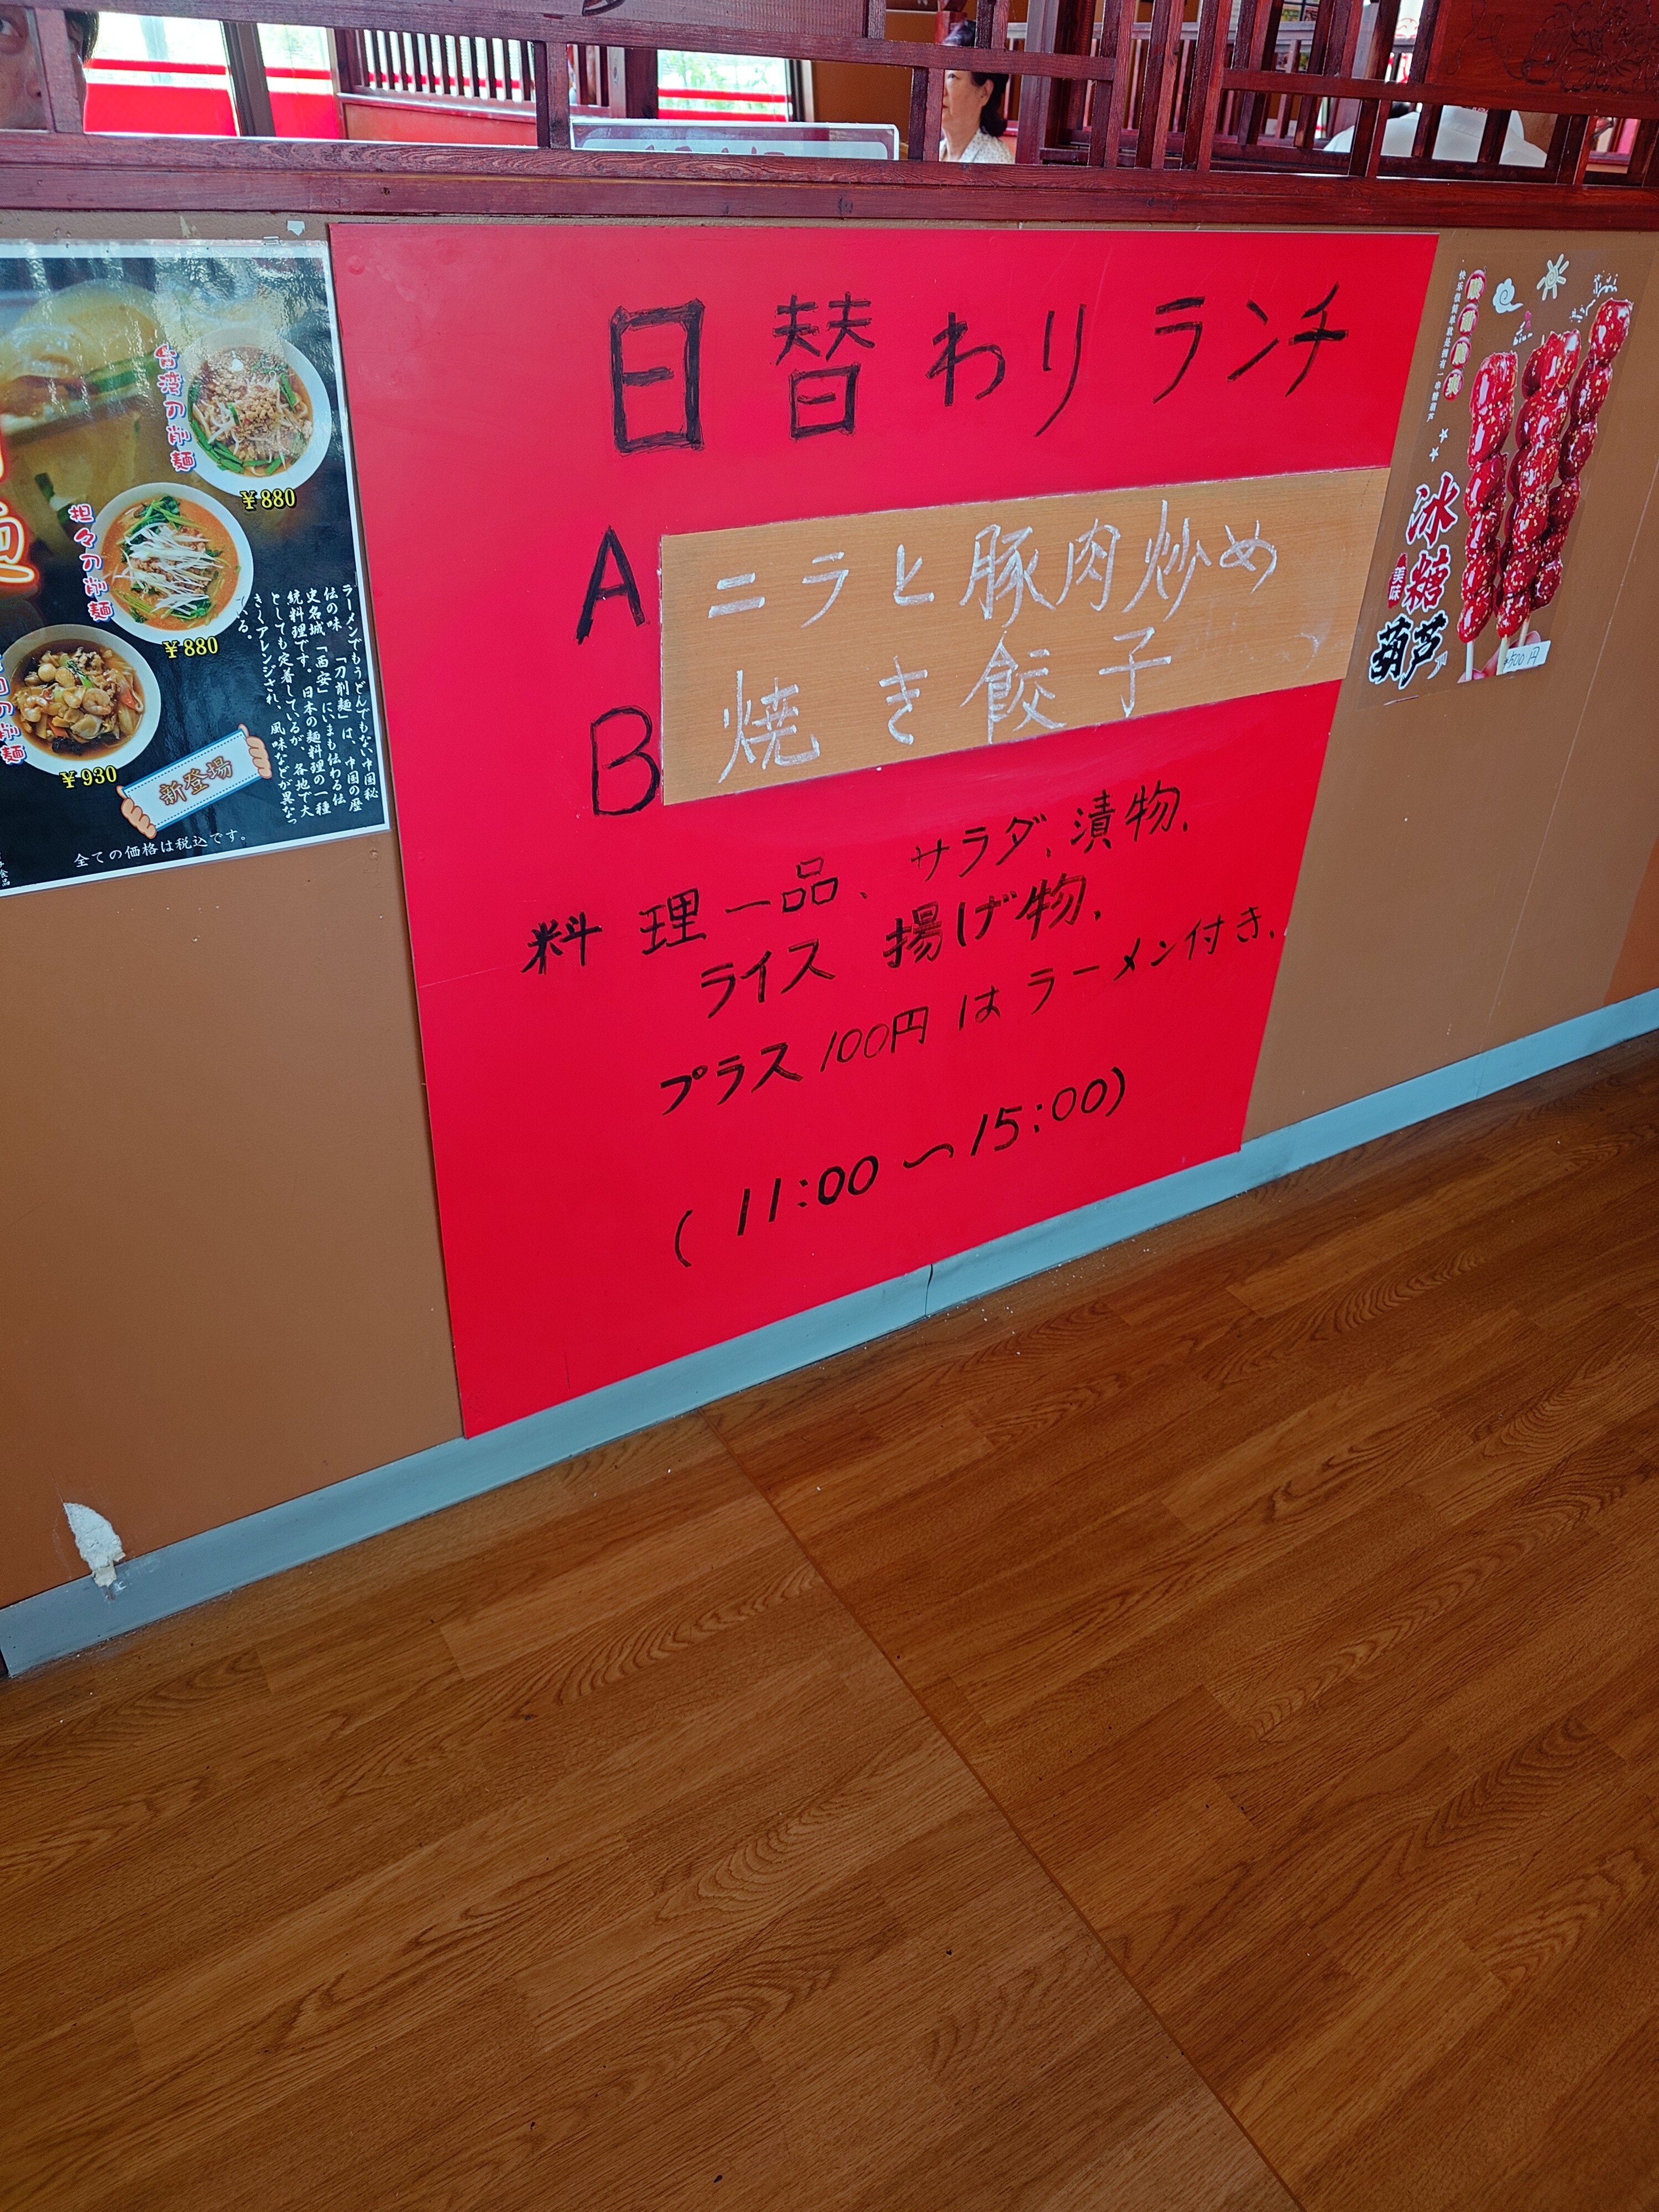 台湾刀削麺
¥880
担々刀削麺
¥880
刀削麺
¥930
ラーメンでもうどんでもない中国秘
伝の味 「刀削麺」は、中国の歴
史名城「西安」にいまも伝わる伝
統料理です。日本の麺料理の一種
としても定着しているが、各地で大
きくアレンジされ、風味などが異なっ
いる。
新登場
全ての価格は税込です。
日替わりランチ
A ニラと豚肉炒め
B 焼き餃子
料理一品、サラダ、漬物、
ライス 揚げ物、
プラス100円はラーメン付き、
(11:00〜15:00)
冰糖
葫芦
美味
¥500円